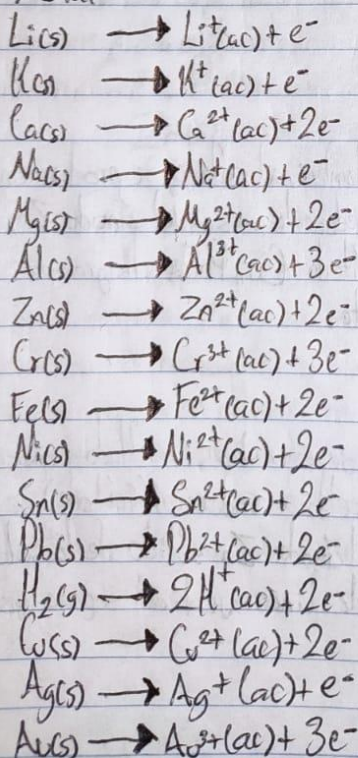 Li(s) → Li⁺(ac) + e⁻
K(s) → K⁺(ac) + e⁻
Ca(s) → Ca²⁺(ac) + 2e⁻
Na(s) → Na⁺(ac) + e⁻
Mg(s) → Mg²⁺(ac) + 2e⁻
Al(s) → Al³⁺(ac) + 3e⁻
Zn(s) → Zn²⁺(ac) + 2e⁻
Cr(s) → Cr³⁺(ac) + 3e⁻
Fe(s) → Fe²⁺(ac) + 2e⁻
Ni(s) → Ni²⁺(ac) + 2e⁻
Sn(s) → Sn²⁺(ac) + 2e⁻
Pb(s) → Pb²⁺(ac) + 2e⁻
H₂(g) → 2H⁺(ac) + 2e⁻
Cu(s) → Cu²⁺(ac) + 2e⁻
Ag(s) → Ag⁺(ac) + e⁻
Au(s) → Au³⁺(ac) + 3e⁻